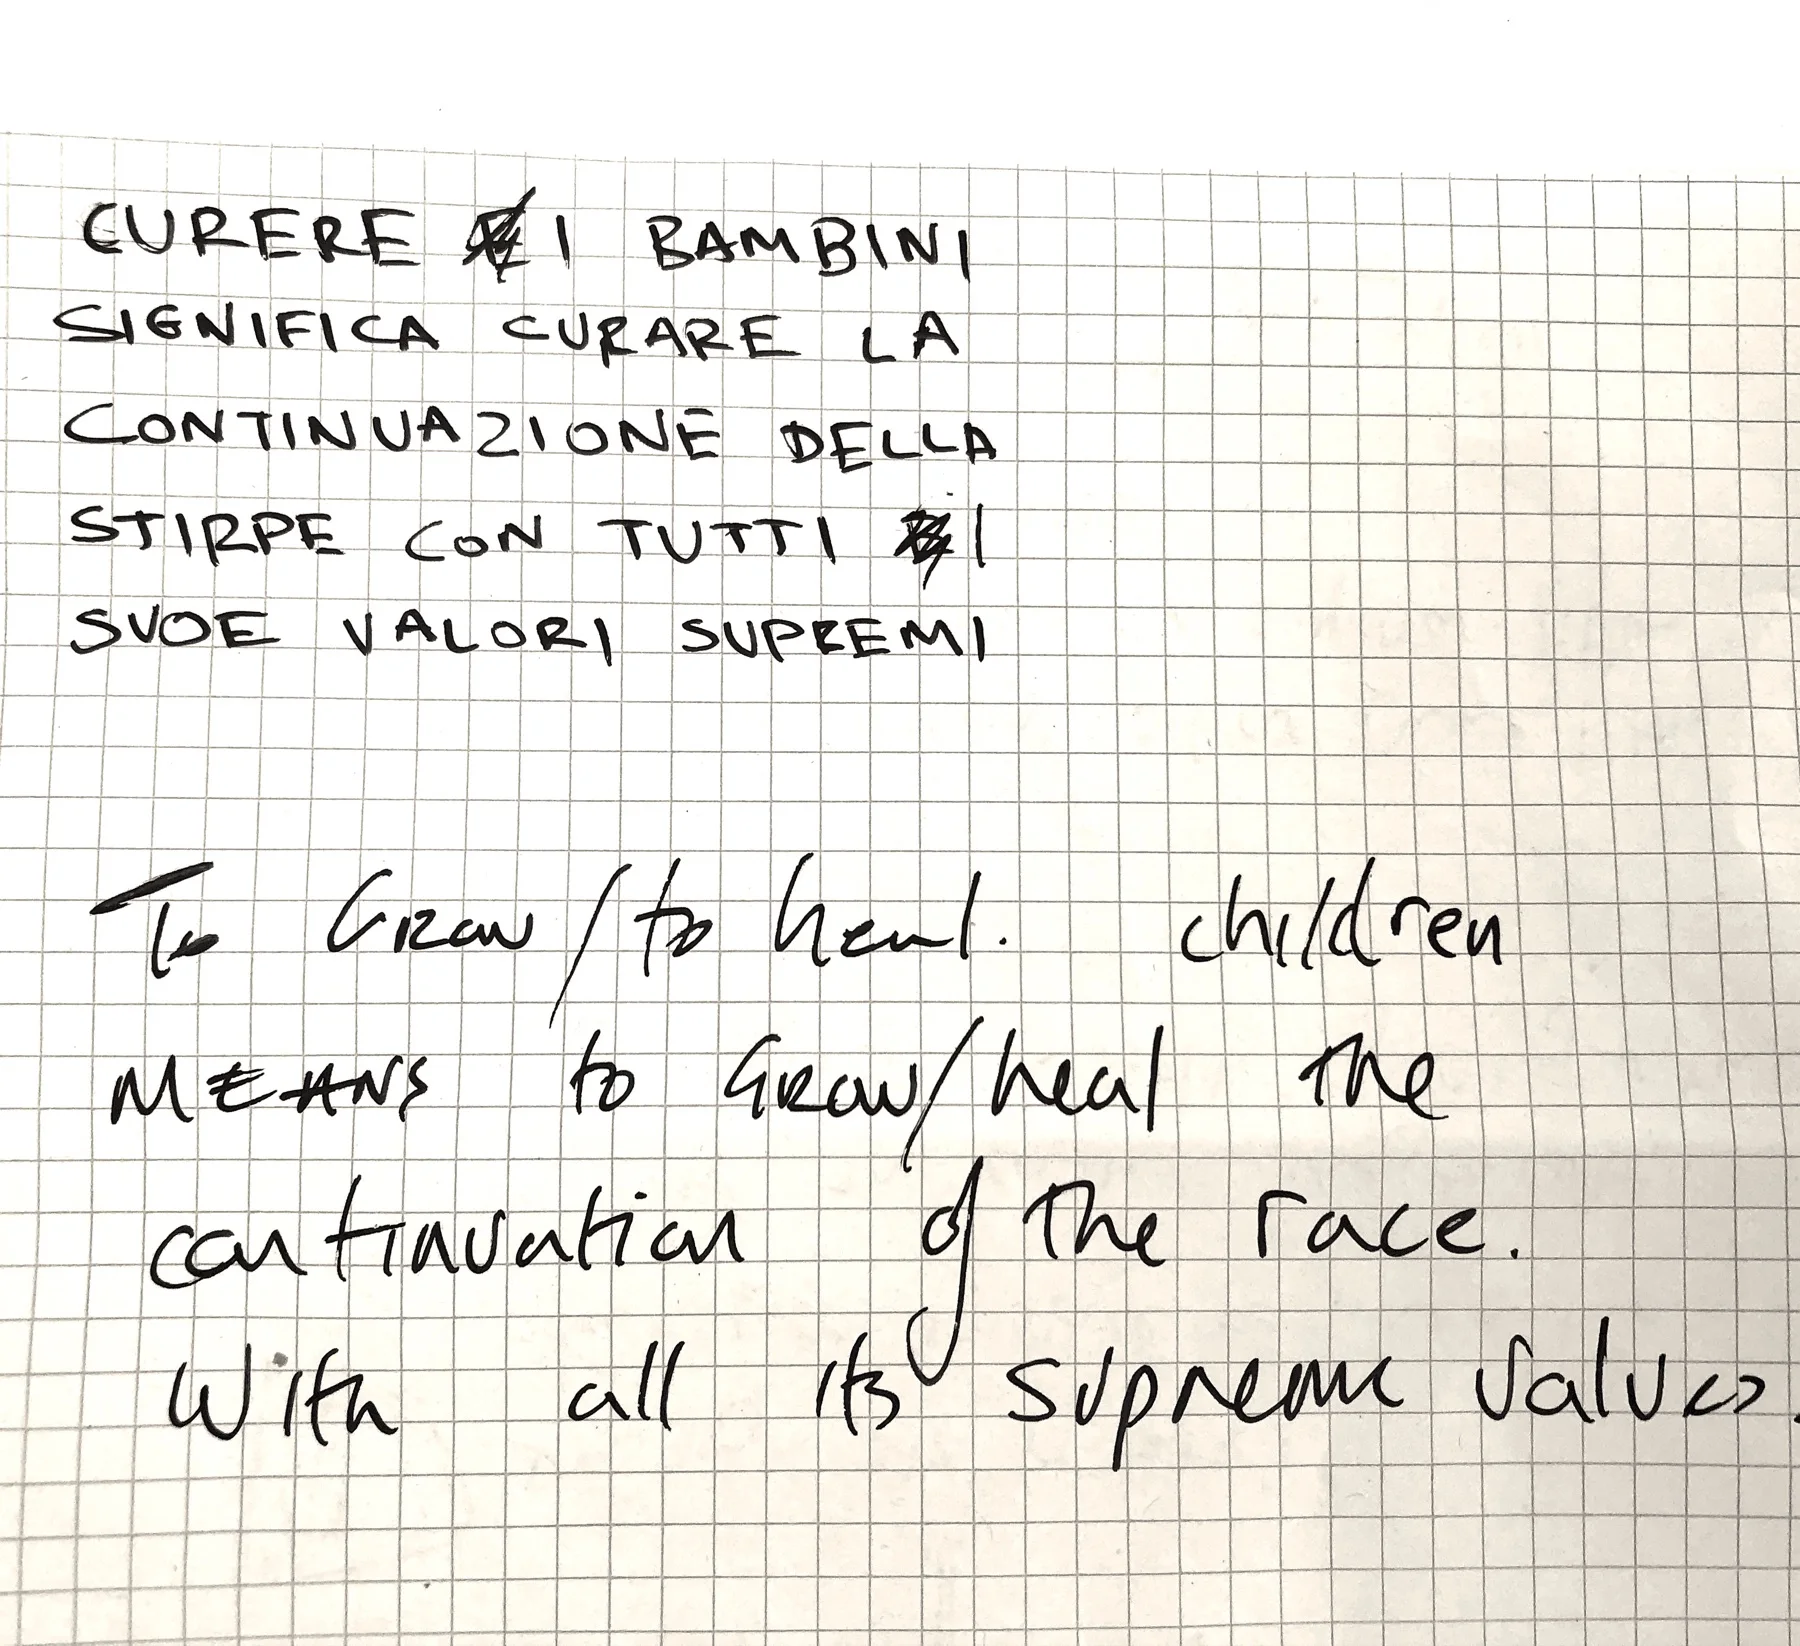 CURERE I BAMBINI
SIGNIFICA CURARE LA
CONTINUAZIONE DELLA
STIRPE CON TUTTI I
SUOE VALORI SUPREMI
To Grow/to heal. children
MEANS to Grow/heal the
continuation of the race.
With all its supreme values.